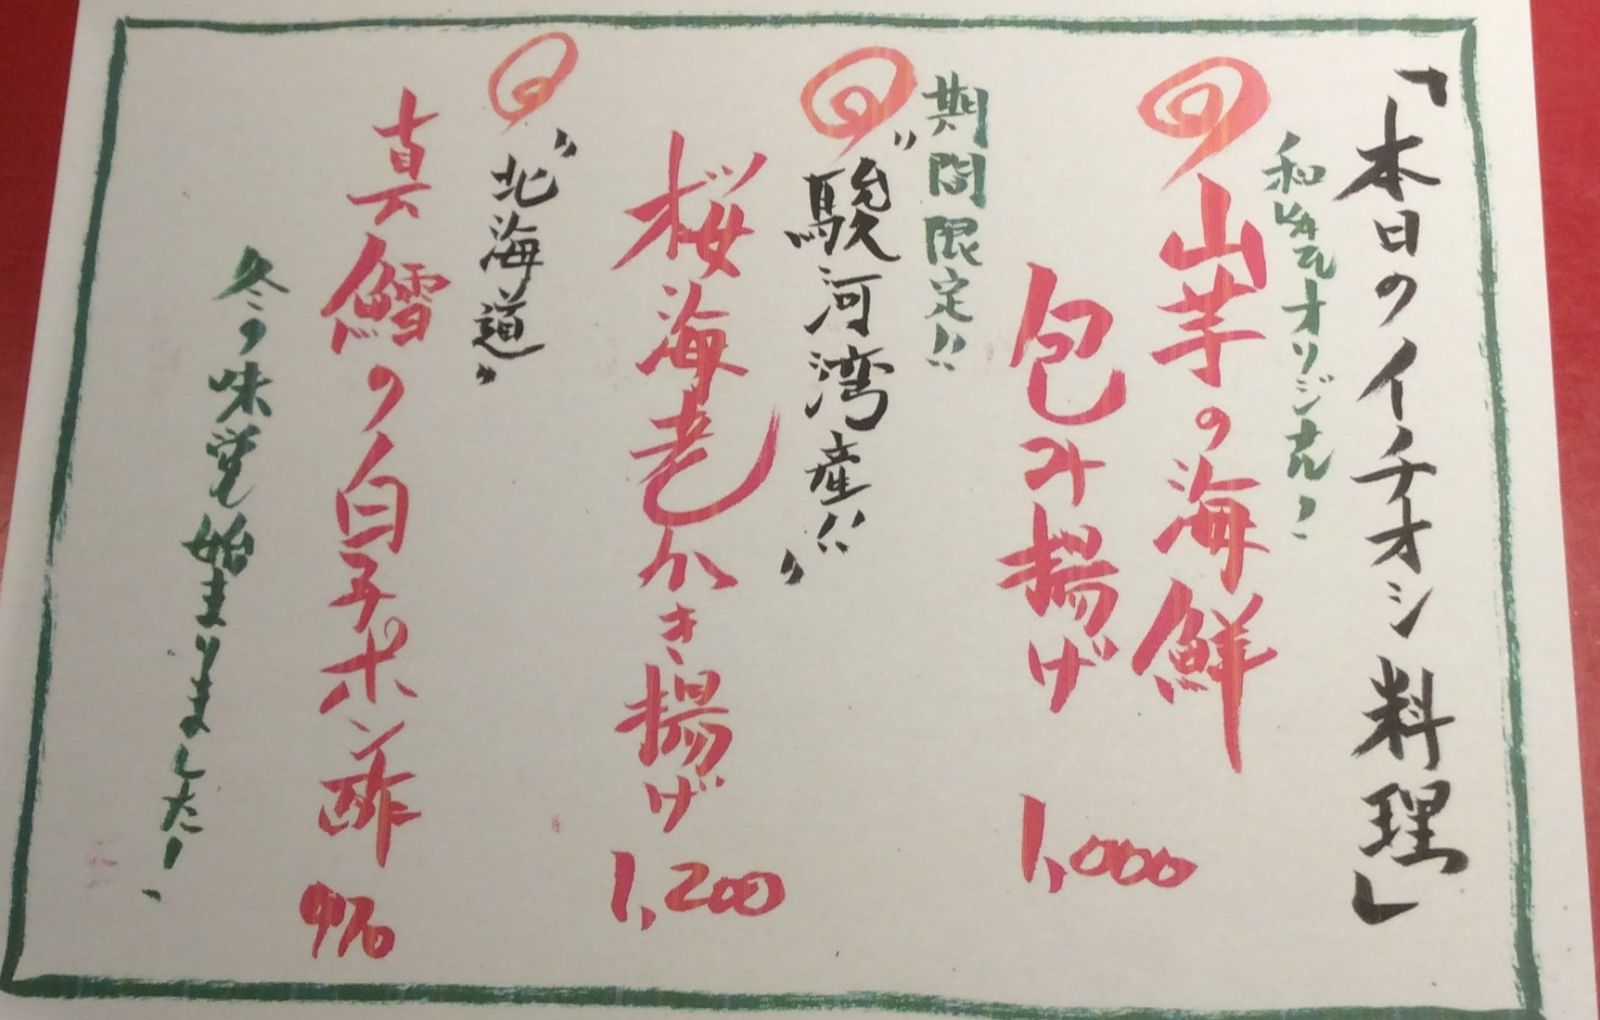 「本日のイチオシ料理」
オリジナル!
山芋の海鮮
包み揚げ
1,000
期間限定!!
"駿河湾産!!"
桜海老かき揚げ
1,200
"北海道"
真鱈の白子ポン酢
970
冬の味覚始まりました!